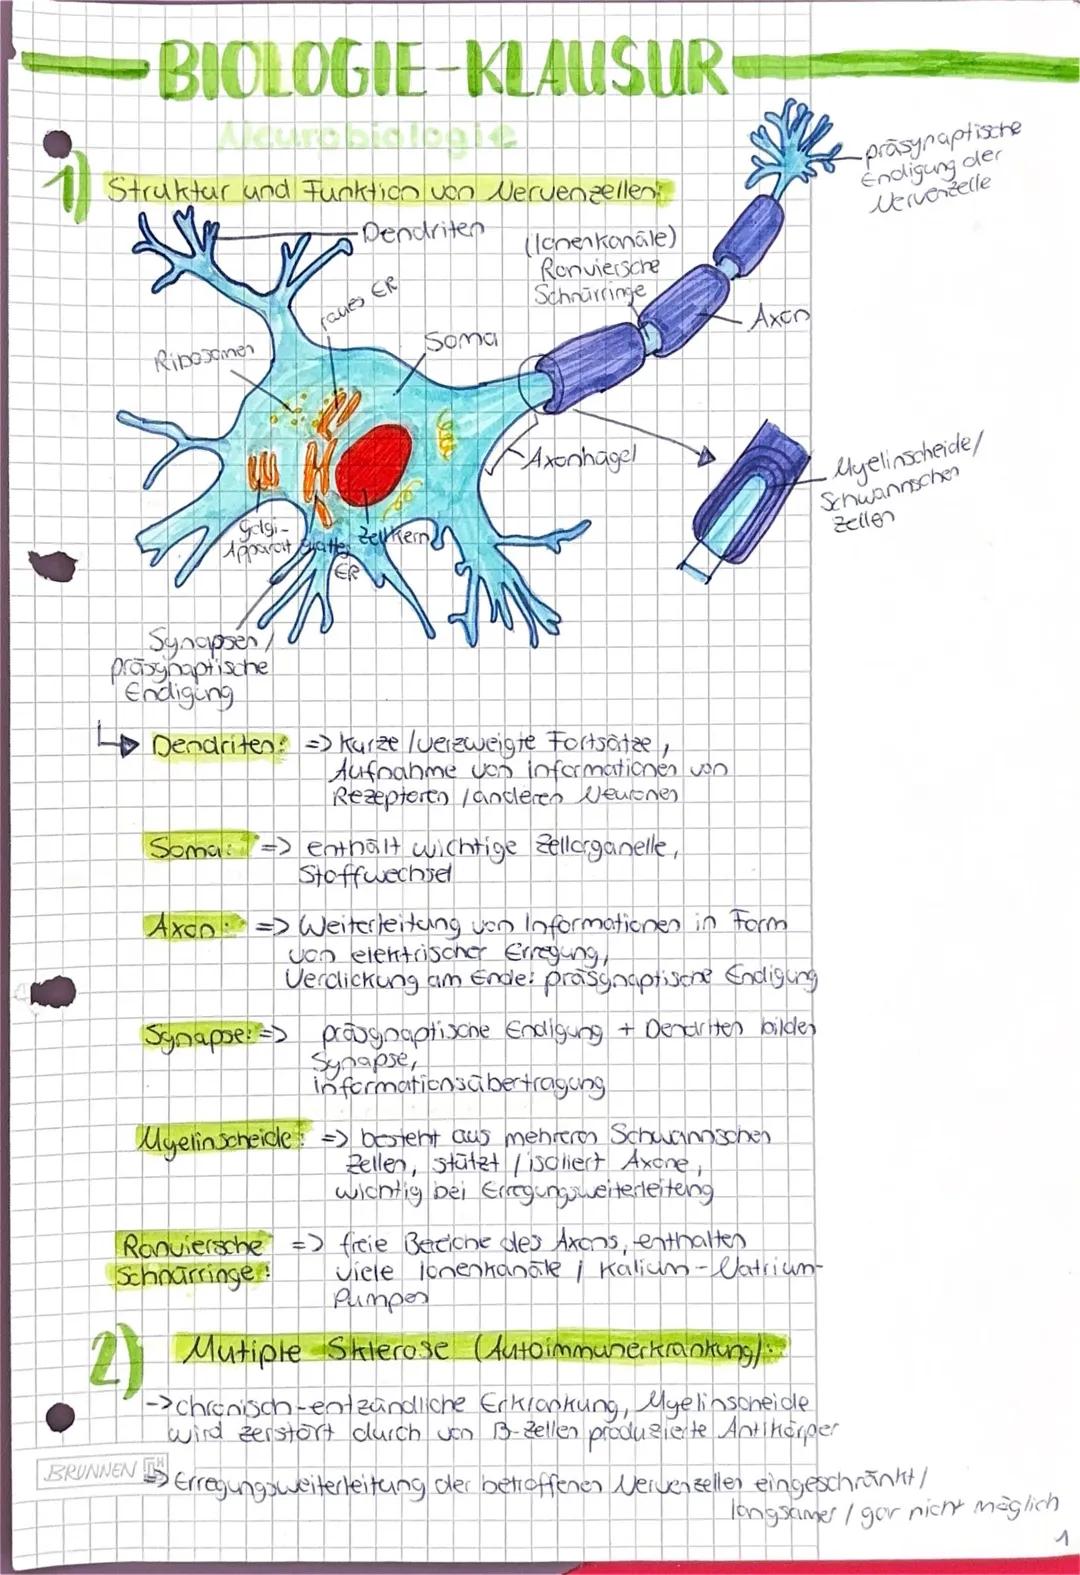 BIOLOGIE-KLAUSUR
Neurobiologie
1) Struktur und Funktion von Nervenzellen:
präsynaptische
Endigung der
Nervenzelle
Dendriten
(Ionenkanäle)
Ranviersche
Schnürringe
raues ER
Axon
Soma
Ribosomen
Axonhügel
Myelinscheide/
Schwannschen
Zellen
Golgi-
Apparat
glattes
ER
Zellkern
Synapsen/
präsynaptische
Endigung
Dendriten: => kurze/verzweigte Fortsätze,
Aufnahme von Informationen von
Rezeptoren/anderen Neuronen
Soma: => enthält wichtige Zellorganelle,
Stoffwechsel
Axon: => Weiterleitung von Informationen in Form
von elektrischer Erregung,
Verdickung am Ende: präsynaptische Endigung
Synapse: => präsynaptische Endigung + Dendriten bilden
Synapse,
informationsübertragung
Myelinscheide: => besteht aus mehreren Schwannschen
Zellen, stützt/isoliert Axone,
wichtig bei Erregungsweiterleitung
Ranviersche => freie Bereiche des Axons, enthalten
Schnürringe: viele Ionenkanäle / Kalium-Natrium-
Pumpen
2) Mutiple Sklerose (Autoimmunerkrankung):
-> chronisch-entzündliche Erkrankung, Myelinscheide
wird zerstört durch von B-Zellen produzierte Antikörper
BRUNNEN
=> Erregungsweiterleitung der betroffenen Nervenzellen eingeschränkt/
langsamer/gar nicht möglich
1